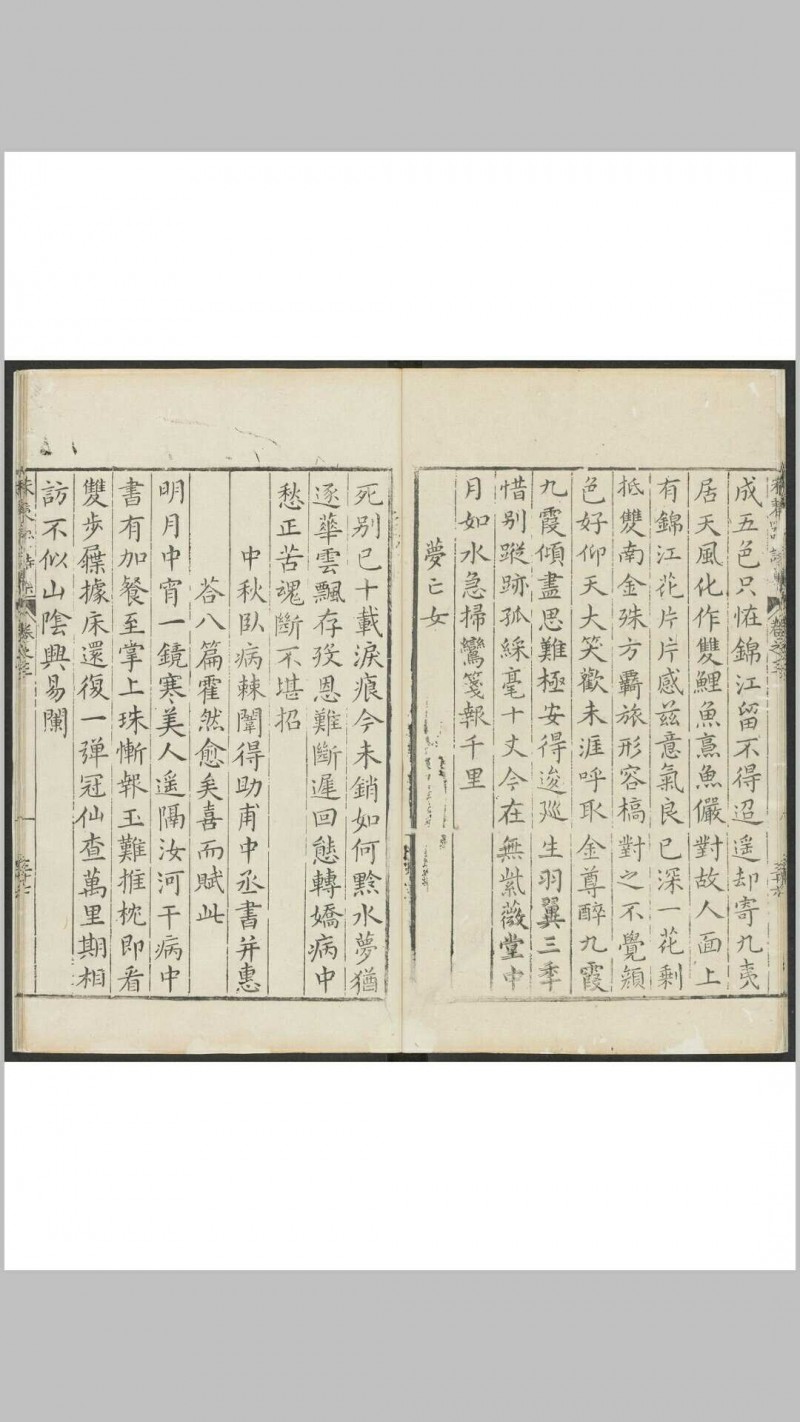 成五色只恠錦江留不得迢遥却寄九夷
居天風化作雙鯉魚烹魚儼對故人面上
有錦江花片片感兹意氣良已深一花剩
抵雙南金殊方羇旅形容槁對之不覺頳
色好仰天大笑歡未涯呼取金尊醉九霞
九霞傾盡思難極安得逡廵生羽翼三季
惜别蹤跡孤綵毫十丈今在無紫薇堂中
月如水急掃鸞箋報千里
夢亡女
死别已十載淚痕今未銷如何黔水夢猶
逐華雲飄存殁恩難斷遲回態轉嬌病中
愁正苦魂斷不堪招
中秋臥病棘闈得助甫中丞書并惠
荅八篇霍然愈矣喜而賦此
明月中宵一鏡寒美人遥隔汝河干病中
書有加餐至掌上珠慚報玉難推枕即看
雙步屧據床還復一弹冠仙查萬里期相
訪不似山陰興易闌